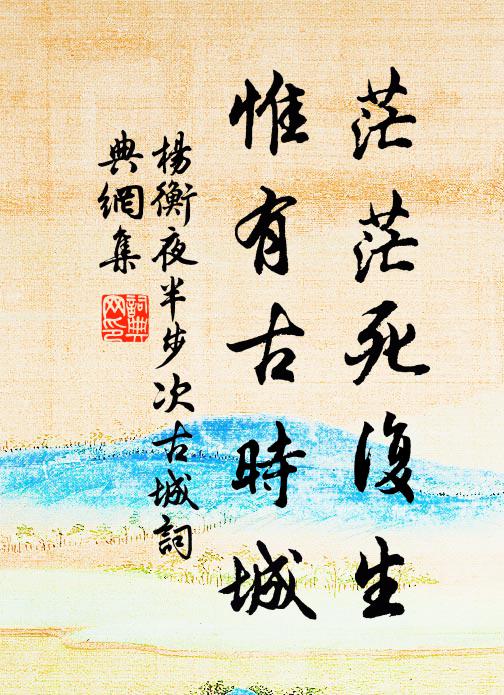 茫茫死復生
惟有古時城
楊衡夜半步次古城詞
典網集
詞典网印